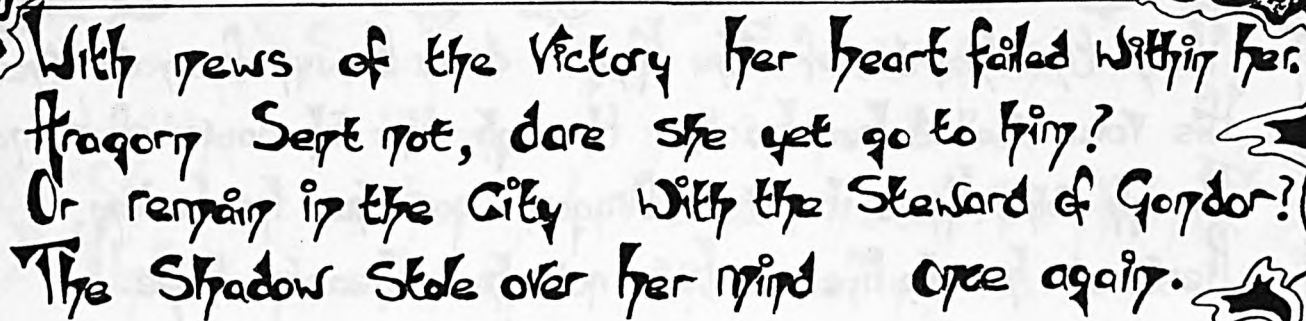 With news of the Victory her heart failed within her.
Aragorn Sent not, dare she yet go to him?
Or remain in the City with the Steward of Gondor?
The Shadow Stole over her mind once again.